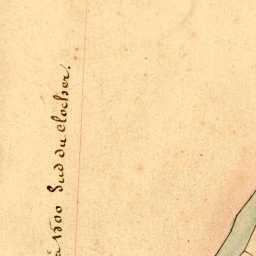 à 1500 Sud du clocher.